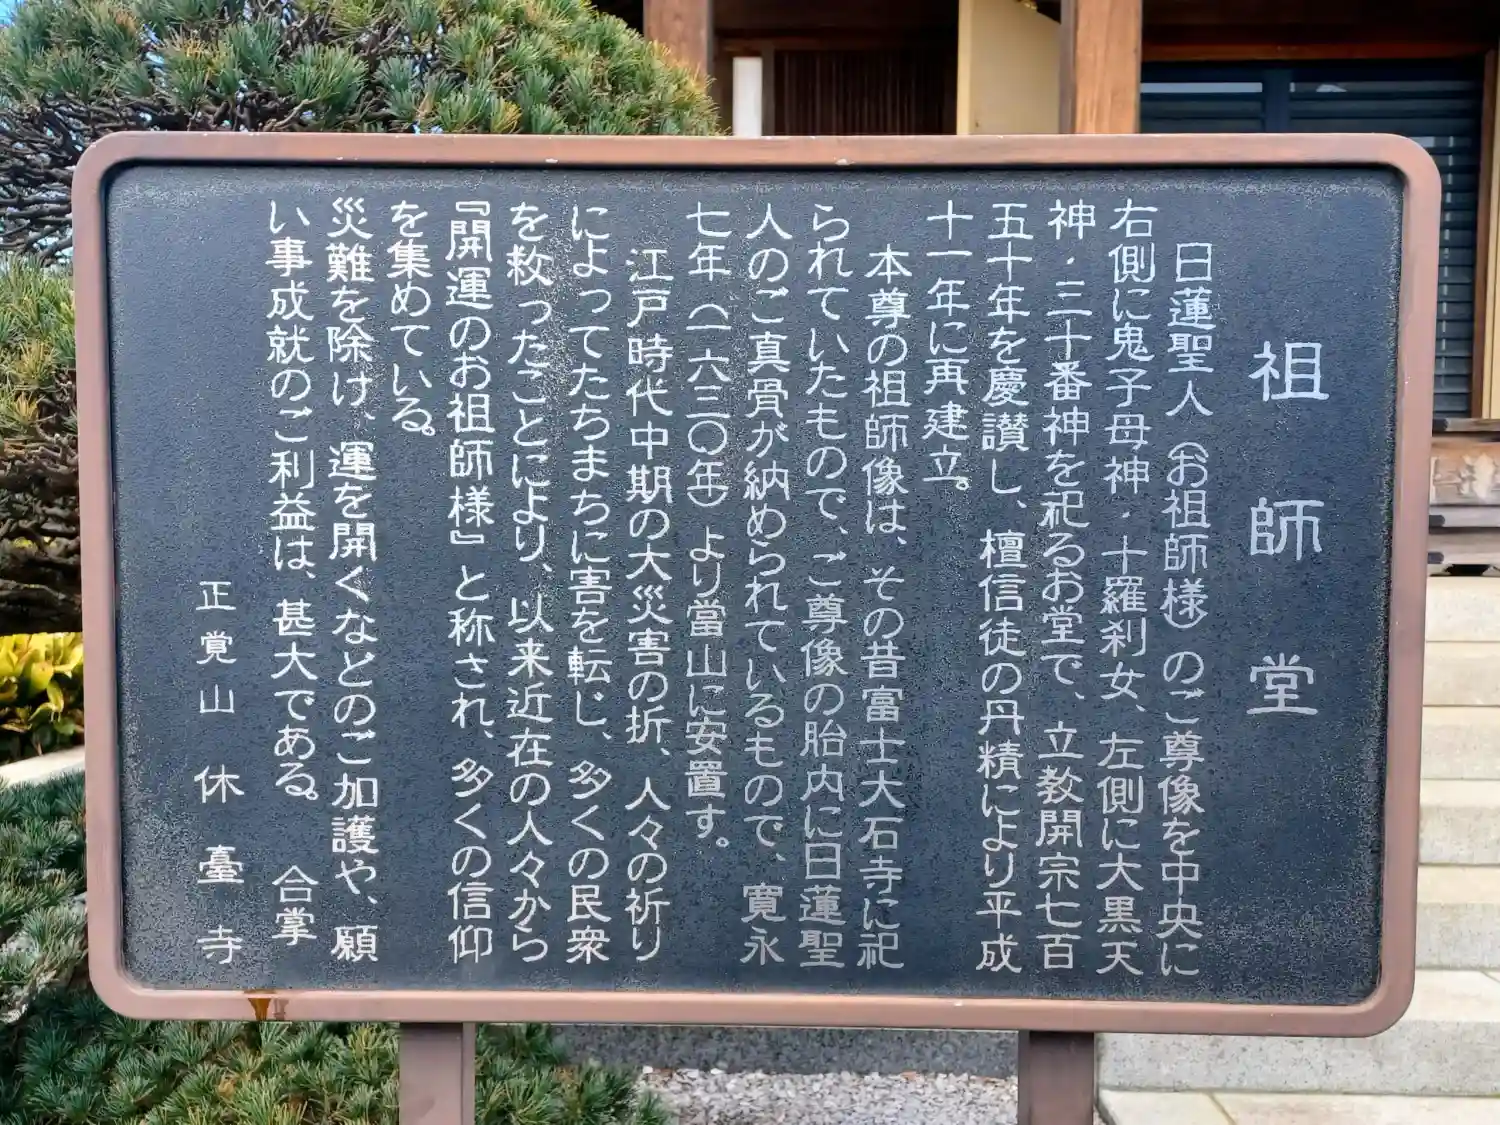 祖師堂
日蓮聖人（お祖師様）のご尊像を中央に
右側に鬼子母神・十羅刹女、左側に大黒天
神・三十番神を祀るお堂で、立教開宗七百
五十年を慶讃し、檀信徒の丹精により平成
十一年に再建立。
本尊の祖師像は、その昔富士大石寺に祀
られていたもので、ご尊像の胎内に日蓮聖
人のご真骨が納められているもので、寛永
七年（一六三〇年）より當山に安置す。
江戸時代中期の大災害の折、人々の祈り
によってたちまちに害を転じ、多くの民衆
を救ったことにより、以来近在の人々から
『開運のお祖師様』と称され、多くの信仰
を集めている。
災難を除け、運を開くなどのご加護や、願
い事成就のご利益は、甚大である。 合掌
正覚山休臺寺